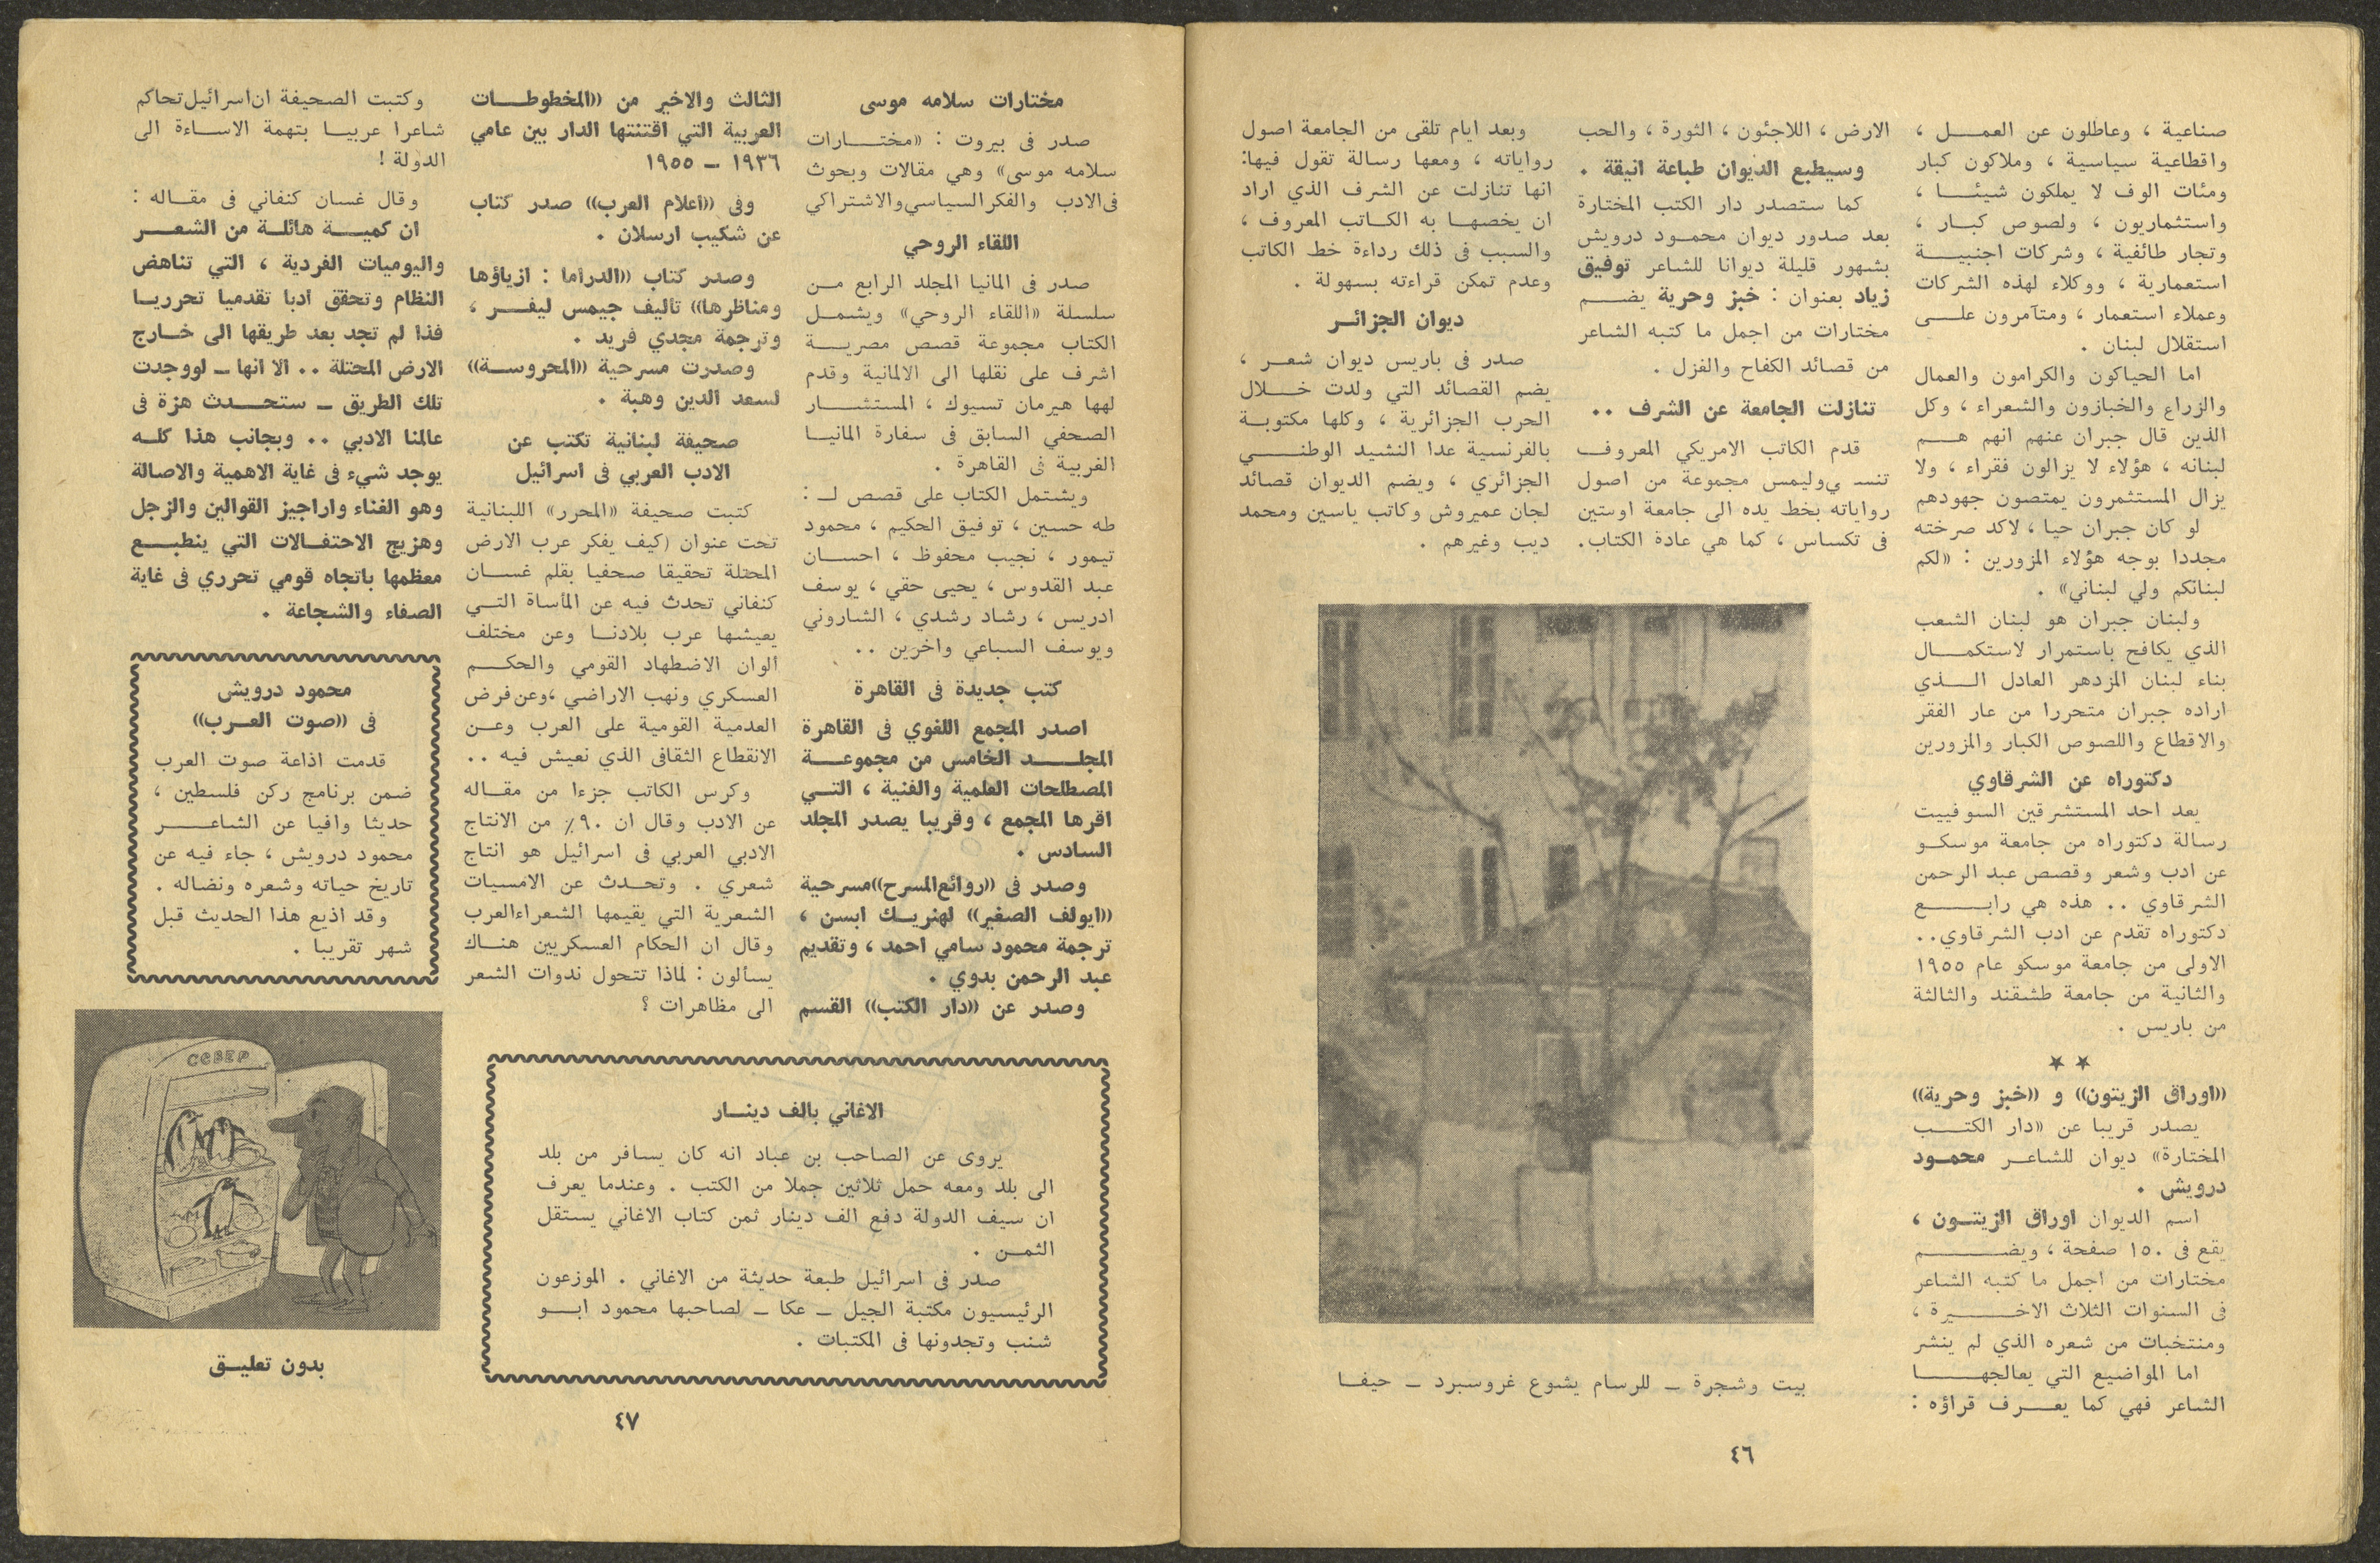 صناعية ، وعاطلون عن العمـــل ،
واقطاعية سياسية ، وملاكون كبار
ومئات الوف لا يملكون شيئــا ،
واستثماريون ، ولصوص كبـار ،
وتجار طائفية ، وشركات اجنبيــة
استعمارية ، ووكلاء لهذه الشركات
وعملاء استعمار ، ومتآمرون علــى
استقلال لبنان .
اما الحياكون والكرامون والعمال
والزراع والخبازون والشعراء ، وكل
الذين قال جبران عنهم انهم هـــم
لبنانه ، هؤلاء لا يزالون فقراء ، ولا
يزال المستثمرون يمتصون جهودهم
لو كان جبران حيا ، لاكد صرخته
مجددا بوجه هؤلاء المزورين : «لكم
لبنانكم ولي لبناني» .
ولبنان جبران هو لبنان الشعب
الذي يكافح باستمرار لاستكمــال
بناء لبنان المزدهر العادل الــذي
اراده جبران متحررا من عار الفقر
والاقطاع واللصوص الكبار والمزورين
دكتوراه عن الشرقاوي
يعد احد المستشرقين السوفييت
رسالة دكتوراه من جامعة موسكـو
عن ادب وشعر وقصص عبد الرحمن
الشرقاوي .. هذه هي رابـــع
دكتوراه تقدم عن ادب الشرقاوي..
الاولى من جامعة موسكو عام ١٩٥٥
والثانية من جامعة طشقند والثالثة
من باريس .
★ ★
«اوراق الزيتون» و «خبز وحرية»
يصدر قريبا عن «دار الكتــب
المختارة» ديوان للشاعـر محمـود
درويش .
اسم الديوان اوراق الزيتــون ،
يقع فى ١٥٠ صفحة ، ويضــــم
مختارات من اجمل ما كتبه الشاعر
فى السنوات الثلاث الاخــيرة ،
ومنتخبات من شعره الذي لم ينشر
اما المواضيع التي يعالجهــــا
الشاعر فهي كما يعــرف قراؤه :
الارض ، اللاجئون ، الثورة ، والحب
وسيطبع الديوان طباعة انيقة .
كما ستصدر دار الكتب المختارة
بعد صدور ديوان محمـود درويش
بشهور قليلة ديوانا للشاعر توفيق
زياد بعنوان : خبز وحرية يضـــم
مختارات من اجمل ما كتبه الشاعر
من قصائد الكفاح والغزل .
تنازلت الجامعة عن الشرف ..
قدم الكاتب الامريكي المعروف
تنسـ ي وليمس مجموعة من اصول
رواياته بخط يده الى جامعة اوستين
فى تكساس ، كما هي عادة الكتاب.
وبعد ايام تلقى من الجامعة اصول
رواياته ، ومعها رسالة تقول فيها:
انها تنازلت عن الشرف الذي اراد
ان يخصهـا به الكـاتب المعروف ،
والسبب فى ذلك رداءة خط الكاتب
وعدم تمكن قراءته بسهولة .
ديوان الجزائـر
صدر فى باريس ديوان شعـر ،
يضم القصائد التي ولدت خــلال
الحرب الجزائرية ، وكلها مكتوبـة
بالفرنسية عدا النشيد الوطنــي
الجزائري ، ويضم الديوان قصائد
لجان عميروش وكاتب ياسين ومحمد
ديب وغيرهم .
بيت وشجرة ــ للرسام يشوع غروسبرد ــ حيفــا
٤٦
مختارات سلامه موسى
صدر فى بيروت : «مختـــارات
سلامه موسى» وهي مقالات وبحوث
فى الادب والفكر السياسي والاشتراكي
اللقاء الروحي
صدر فى المانيا المجلد الرابع مـن
سلسلة «اللقاء الروحي» ويشمــل
الكتاب مجموعة قصص مصريـــة
اشرف على نقلها الى الالمانية وقدم
لهها هيرمان تسيوك ، المستشـــار
الصحفي السابق فى سفارة المانيـا
الغربية فى القاهرة .
ويشتمل الكتاب على قصص لــ :
طه حسين ، توفيق الحكيم ، محمود
تيمور ، نجيب محفوظ ، احســان
عبد القدوس ، يحيى حقي ، يوسف
ادريس ، رشاد رشدي ، الشاروني
ويوسف السباعي واخرين ..
كتب جديدة فى القاهرة
اصدر المجمع اللغوي فى القاهرة
المجلــــد الخامس من مجموعـــة
المصطلحات العلمية والفنية ، التــي
اقرها المجمع ، وقريبا يصدر المجلد
السادس .
وصدر فى «روائع المسرح» مسرحية
«ايولف الصغير» لهنريـك ابسن ،
ترجمة محمود سامي احمد ، وتقديم
عبد الرحمن بدوي .
وصدر عن «دار الكتب» القسم
الثالث والاخير من «المخطوطـــات
العربية التي اقتنتها الدار بين عامي
١٩٣٦ ــ ١٩٥٥
وفى «اعلام العرب» صدر كتاب
عن شكيب ارسلان .
وصدر كتاب «الدراما : ازياؤها
ومناظرها» تأليف جيمس ليفـــر ،
وترجمة مجدي فريد .
وصدرت مسرحية «المحروسـة»
لسعد الدين وهبة .
صحيفة لبنانية تكتب عن
الادب العربي فى اسرائيل
كتبت صحيفة «المحرر» اللبنانية
تحت عنوان (كيف يفكر عرب الارض
المحتلة تحقيقا صحفيا بقلم غســان
كنفاني تحدث فيه عن المأساة التــي
يعيشها عرب بلادنـا وعن مختلف
الوان الاضطهاد القومي والحكــم
العسكري ونهب الاراضي ،وعن فرض
العدمية القومية على العرب وعــن
الانقطاع الثقافى الذي نعيش فيه ..
وكرس الكاتب جزءا من مقـاله
عن الادب وقال ان ٩٠٪ من الانتاج
الادبي العربي فى اسرائيل هو انتاج
شعري . وتحـدث عن الامسيات
الشعرية التي يقيمها الشعراء العرب
وقال ان الحكام العسكريين هنــاك
يسألون : لماذا تتحول ندوات الشعر
الى مظاهرات ؟
وكتبت الصحيفة ان اسرائيل تحاكم
شاعرا عربيـا بتهمة الاسـاءة الى
الدولة !
وقال غسان كنفاني فى مقـاله :
ان كميـــة هائلـة من الشعــر
واليوميات الفردية ، التي تناهض
النظام وتحقق ادبا تقدميا تحرريـا
فذا لم تجد بعد طريقها الى خـارج
الارض المحتلة .. الا انها ــ لو وجدت
تلك الطريق ــ ستحــدث هزة فى
عالمنا الادبي .. وبجانب هذا كلـه
يوجد شيء فى غاية الاهمية والاصالة
وهو الغناء واراجيز القوالين والزجل
وهزيج الاحتفـالات التي ينطبـــع
معظمها باتجاه قومي تحرري فى غاية
الصفاء والشجاعة .
محمود درويش
فى «صوت العـرب»
قدمت اذاعة صوت العرب
ضمن برنامج ركن فلسطين ،
حديثا وافيا عن الشاعـــر
محمود درويش ، جاء فيه عن
تاريخ حياته وشعره ونضاله .
وقد اذيع هذا الحديث قبل
شهر تقريبا .
الاغاني بالف دينــار
يروى عن الصاحب بن عباد انه كان يسافر من بلد
الى بلد ومعه حمل ثلاثين جملا من الكتب . وعندما يعرف
ان سيف الدولة دفع الف دينار ثمن كتاب الاغاني يستقل
الثمـن .
صدر فى اسرائيل طبعة حديثة من الاغاني . الموزعون
الرئيسيون مكتبة الجيل ــ عكا ــ لصاحبها محمود ابــو
شنب وتجدونها فى المكتبات .
بدون تعليـق
٤٧